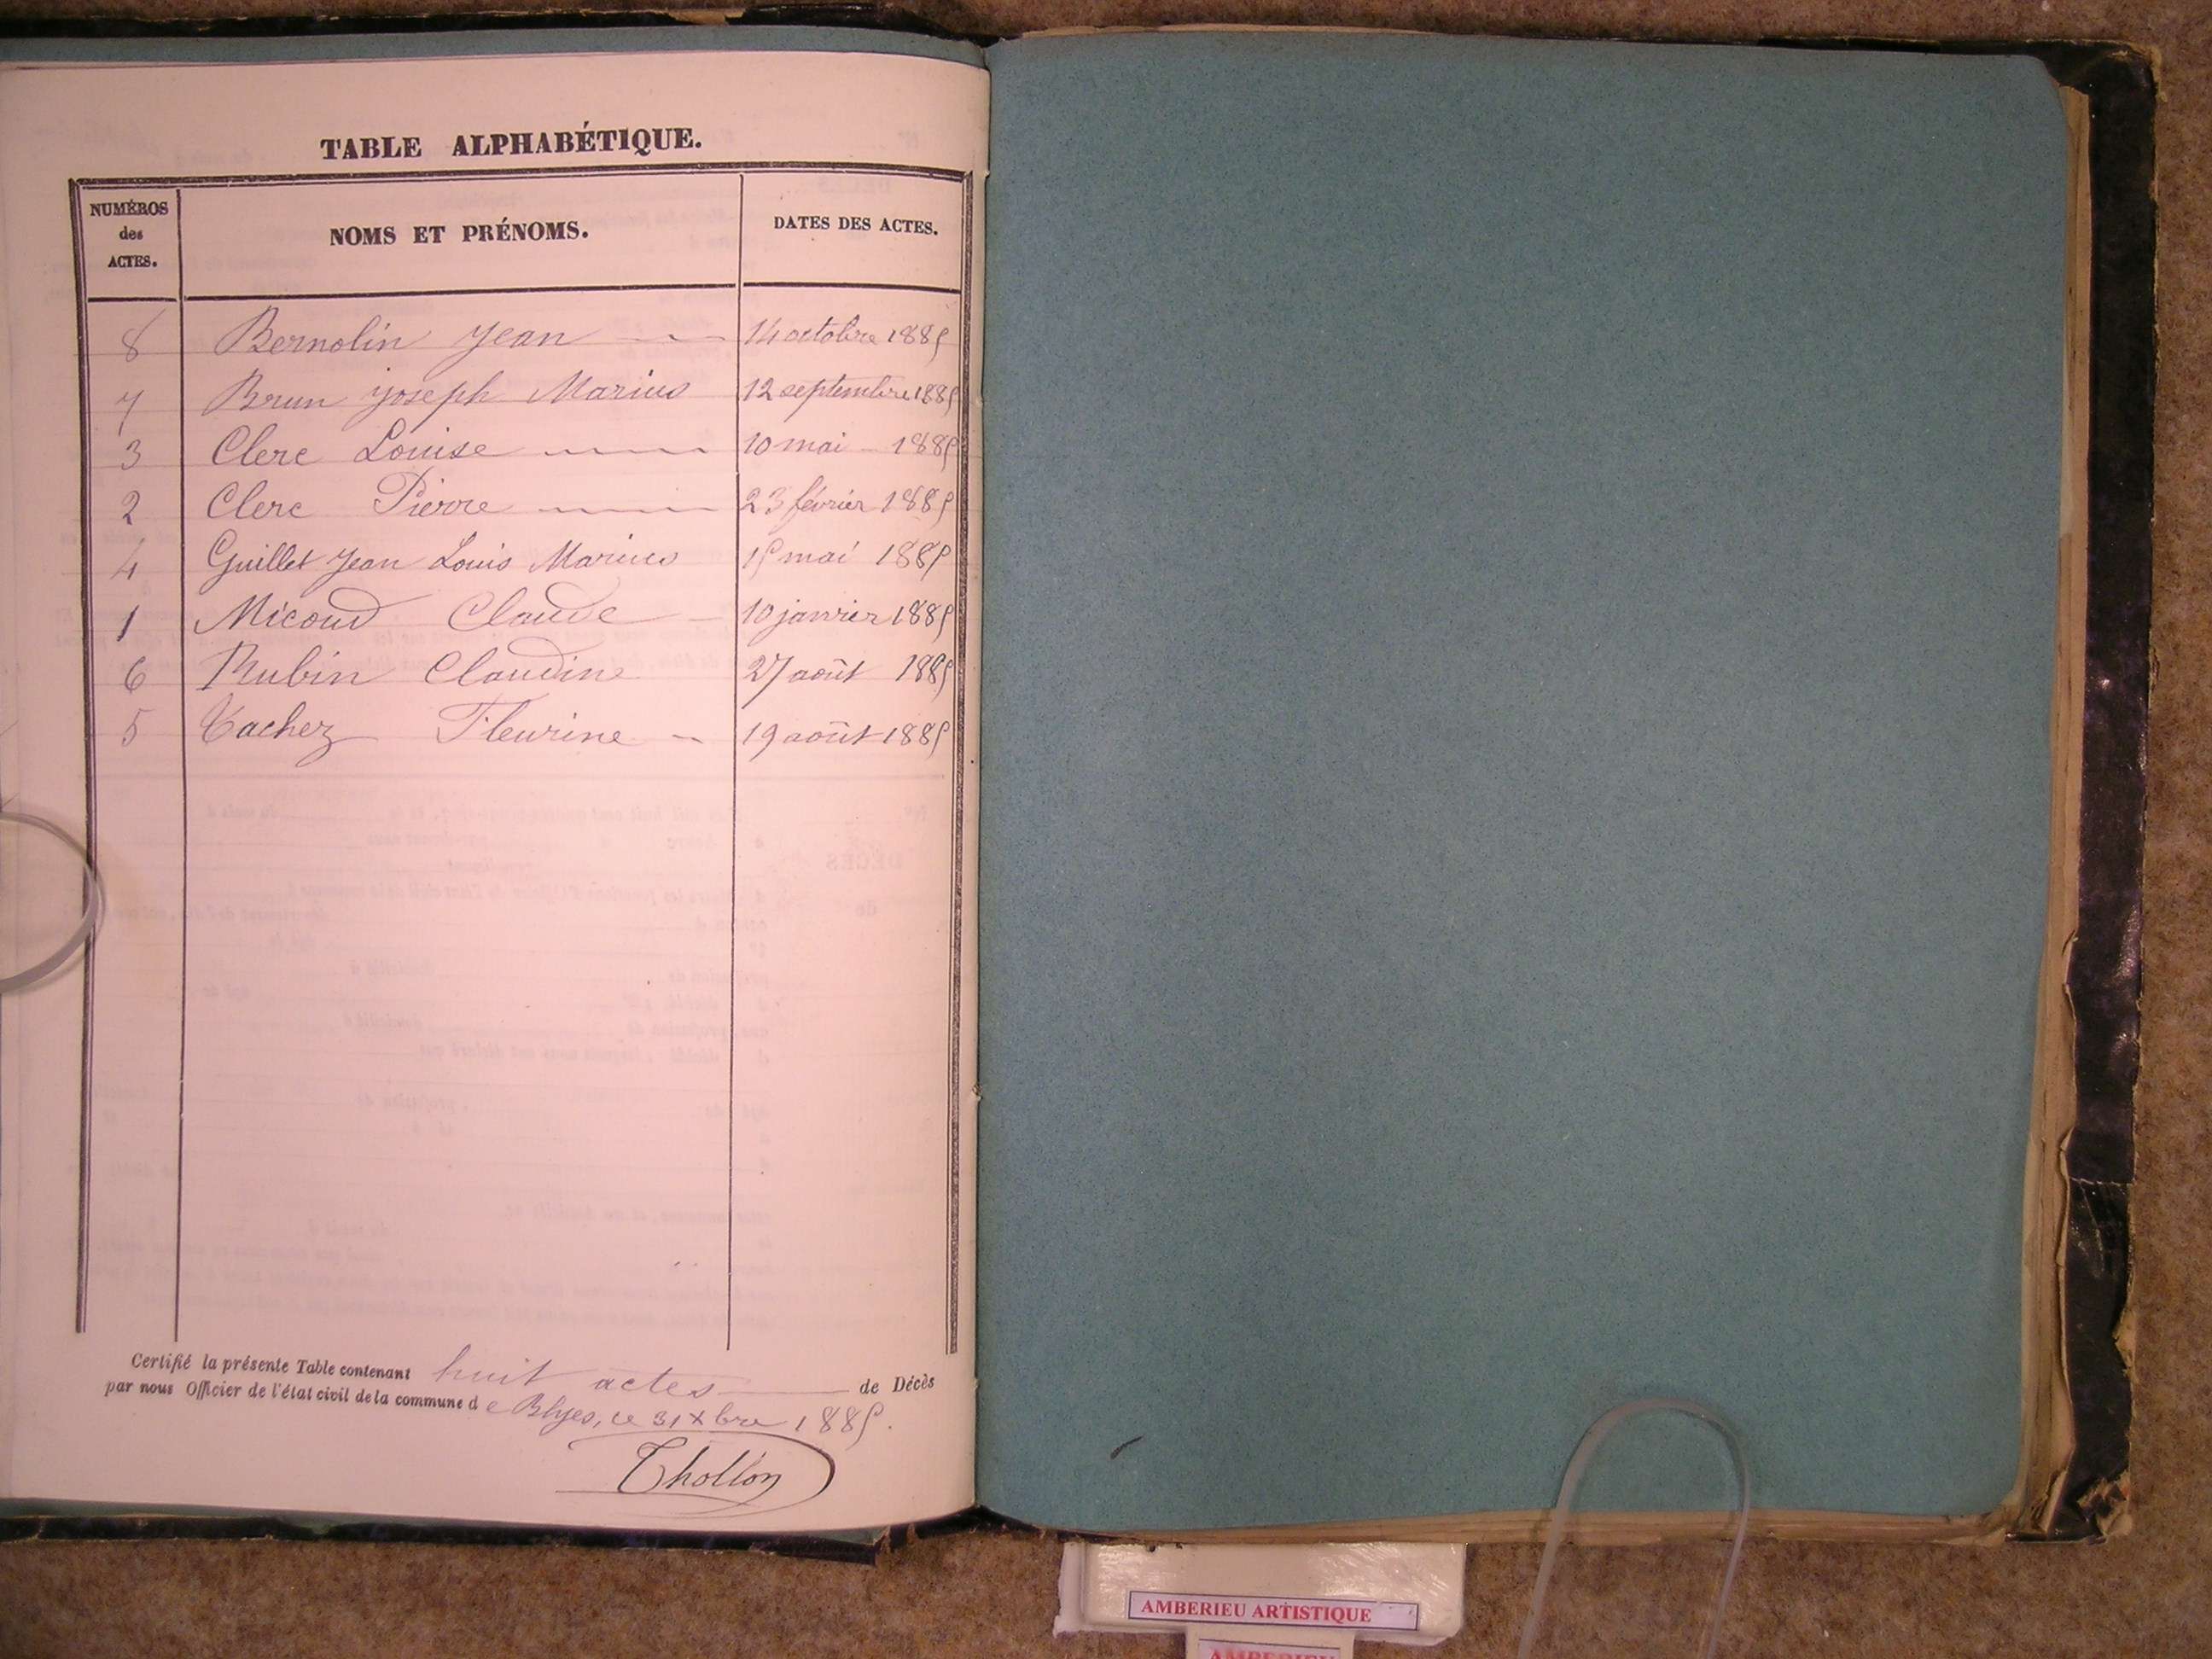 TABLE ALPHABÉTIQUE.
NUMÉROS
des
ACTES.
NOMS ET PRÉNOMS.
DATES DES ACTES.
8 Bernolin Jean 14 octobre 1885
7 Brun Joseph Marius 12 septembre 1885
3 Clerc Louise 10 mai 1885
2 Clerc Pierre 23 février 1885
4 Guillet Jean Louis Marius 15 mai 1885
1 Micoud Claude 10 janvier 1885
6 Rubin Claudine 27 août 1885
5 Vachez Fleurine 19 août 1885
Certifié la présente Table contenant huit actes de Décès
par nous Officier de l'état civil de la commune de Blyes, ce 31 Xbre 1885.
Thollon
AMBERIEU ARTISTIQUE
AMBERIEU